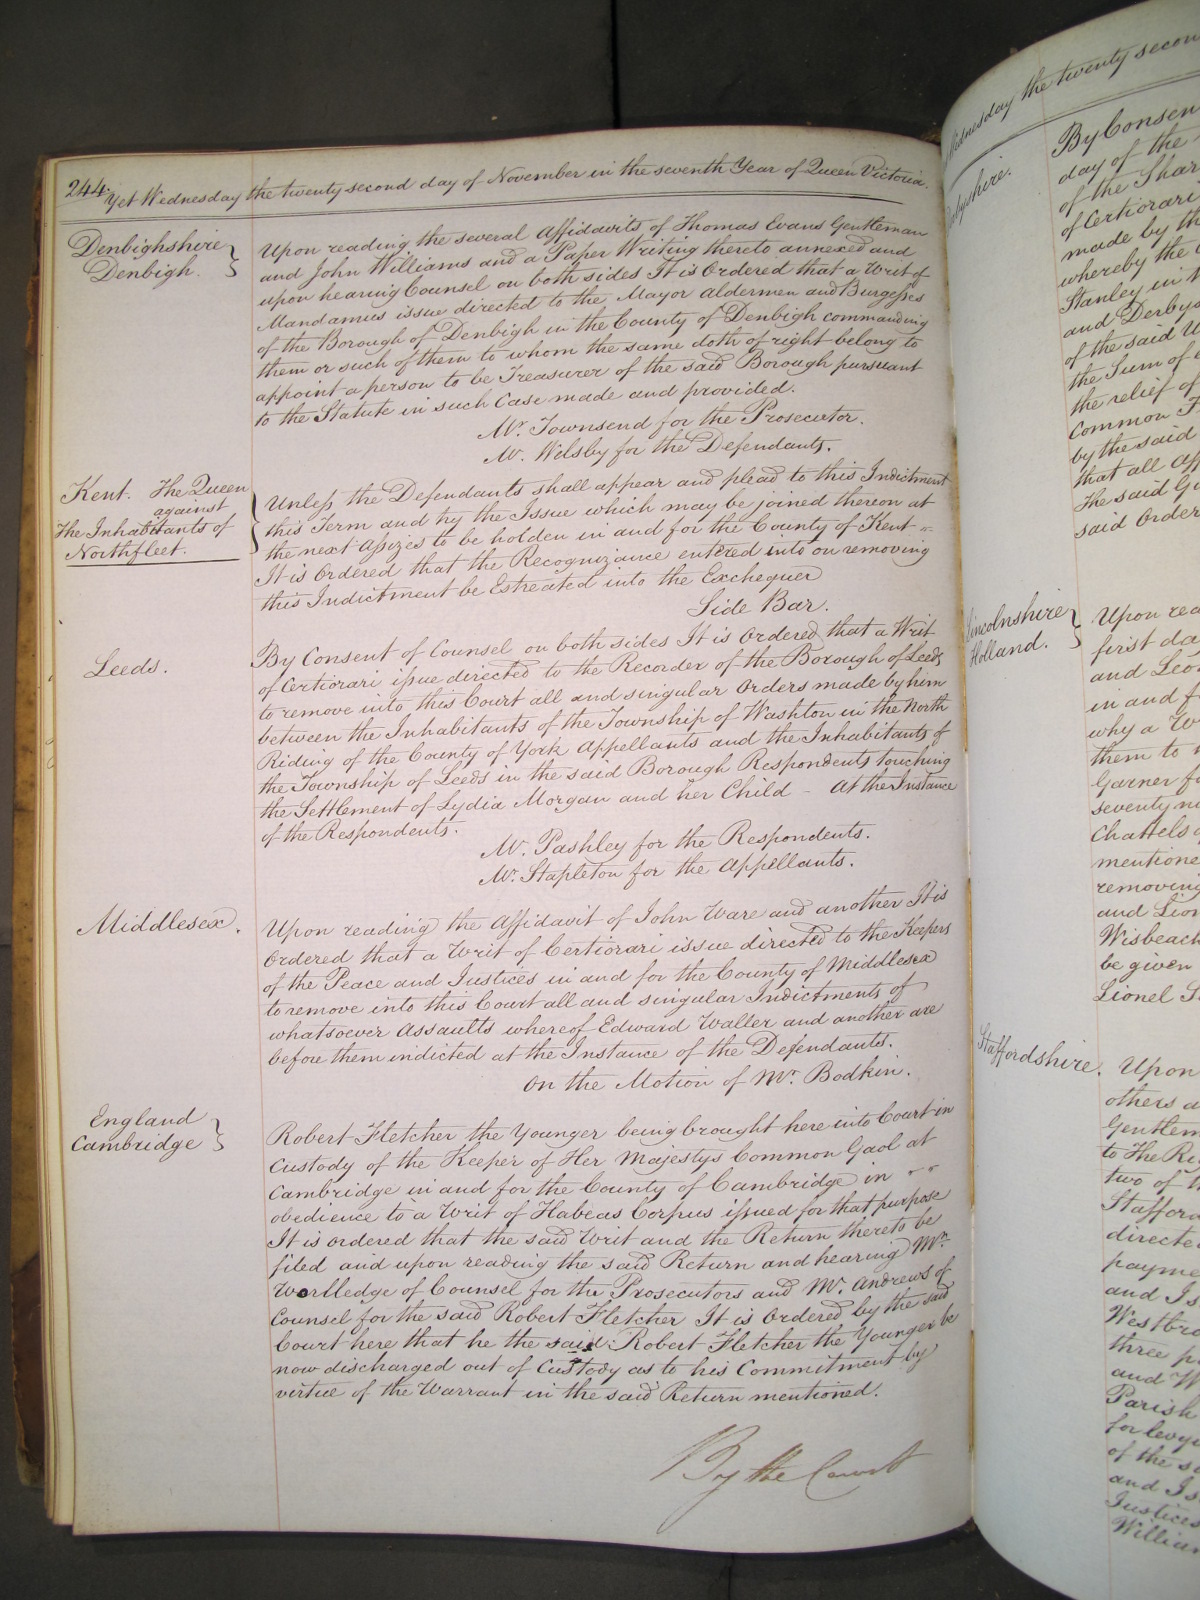 244. Yet Wednesday the twenty second day of November in the seventh Year of Queen Victoria.
Denbighshire
Denbigh.
Upon reading the several Affidavits of Thomas Evans Gentleman
and John Williams and a Paper Writing thereto annexed and
upon hearing Counsel on both sides It is Ordered that a Writ of
Mandamus issue directed to the Mayor Aldermen and Burgesses
of the Borough of Denbigh in the County of Denbigh commanding
them or such of them to whom the same doth of right belong to
appoint a person to be Treasurer of the said Borough pursuant
to the Statute in such Case made and provided.
Mr. Townsend for the Prosecutor.
Mr. Welsby for the Defendants.
Kent. The Queen
against
The Inhabitants of
Northfleet.
Unless the Defendants shall appear and plead to this Indictment
this Term and try the Issue which may be joined thereon at
the next Assizes to be holden in and for the County of Kent
It is Ordered that the Recognizance entered into on removing
this Indictment be Estreated into the Exchequer
Side Bar.
Leeds.
By Consent of Counsel on both sides It is Ordered that a Writ
of Certiorari issue directed to the Recorder of the Borough of Leeds
to remove into this Court all and singular Orders made by him
between the Inhabitants of the Township of Washton in the North
Riding of the County of York Appellants and the Inhabitants of
the Township of Leeds in the said Borough Respondents touching
the Settlement of Lydia Morgan and her Child - At the Instance
of the Respondents.
Mr. Pashley for the Respondents.
Mr. Stapleton for the Appellants.
Middlesex.
Upon reading the Affidavit of John Ware and another It is
Ordered that a Writ of Certiorari issue directed to the Keepers
of the Peace and Justices in and for the County of Middlesex
to remove into this Court all and singular Indictments of
whatsoever Assaults whereof Edward Waller and another are
before them indicted at the Instance of the Defendants.
On the Motion of Mr. Bodkin.
England
Cambridge
Robert Fletcher the Younger being brought here into Court in
Custody of the Keeper of Her Majestys Common Gaol at
Cambridge in and for the County of Cambridge in
obedience to a Writ of Habeas Corpus issued for that purpose
It is ordered that the said Writ and the Return thereto be
filed and upon reading the said Return and hearing Mr.
Worlledge of Counsel for the Prosecutors and Mr. Andrews of
Counsel for the said Robert Fletcher It is Ordered by the said
Court here that he the said Robert Fletcher the Younger be
now discharged out of Custody as to his Commitment by
virtue of the Warrant in the said Return mentioned.
By the Court
Wednesday the twenty secon
By Consen
day of the
of the Shar
of Certiorari
made by th
whereby the
Stanley in
and Derbys
of the said
the Sum of
the relief of
Common
by the said
that all Aff
The said
said Order
Lincolnshire
Holland.
Upon rea
first da
and Leo
in and f
why a W
them to
Garner fo
seventy ni
Chattels
mentione
removing
and Lion
Wisbeach
be given
Lionel
Staffordshire.
Upon
others a
Gentlem
to The
two of t
Stafford
directe
payme
and Is
Westbro
three p
and W
Parish
for levy
of the s
and Is
Justices
William